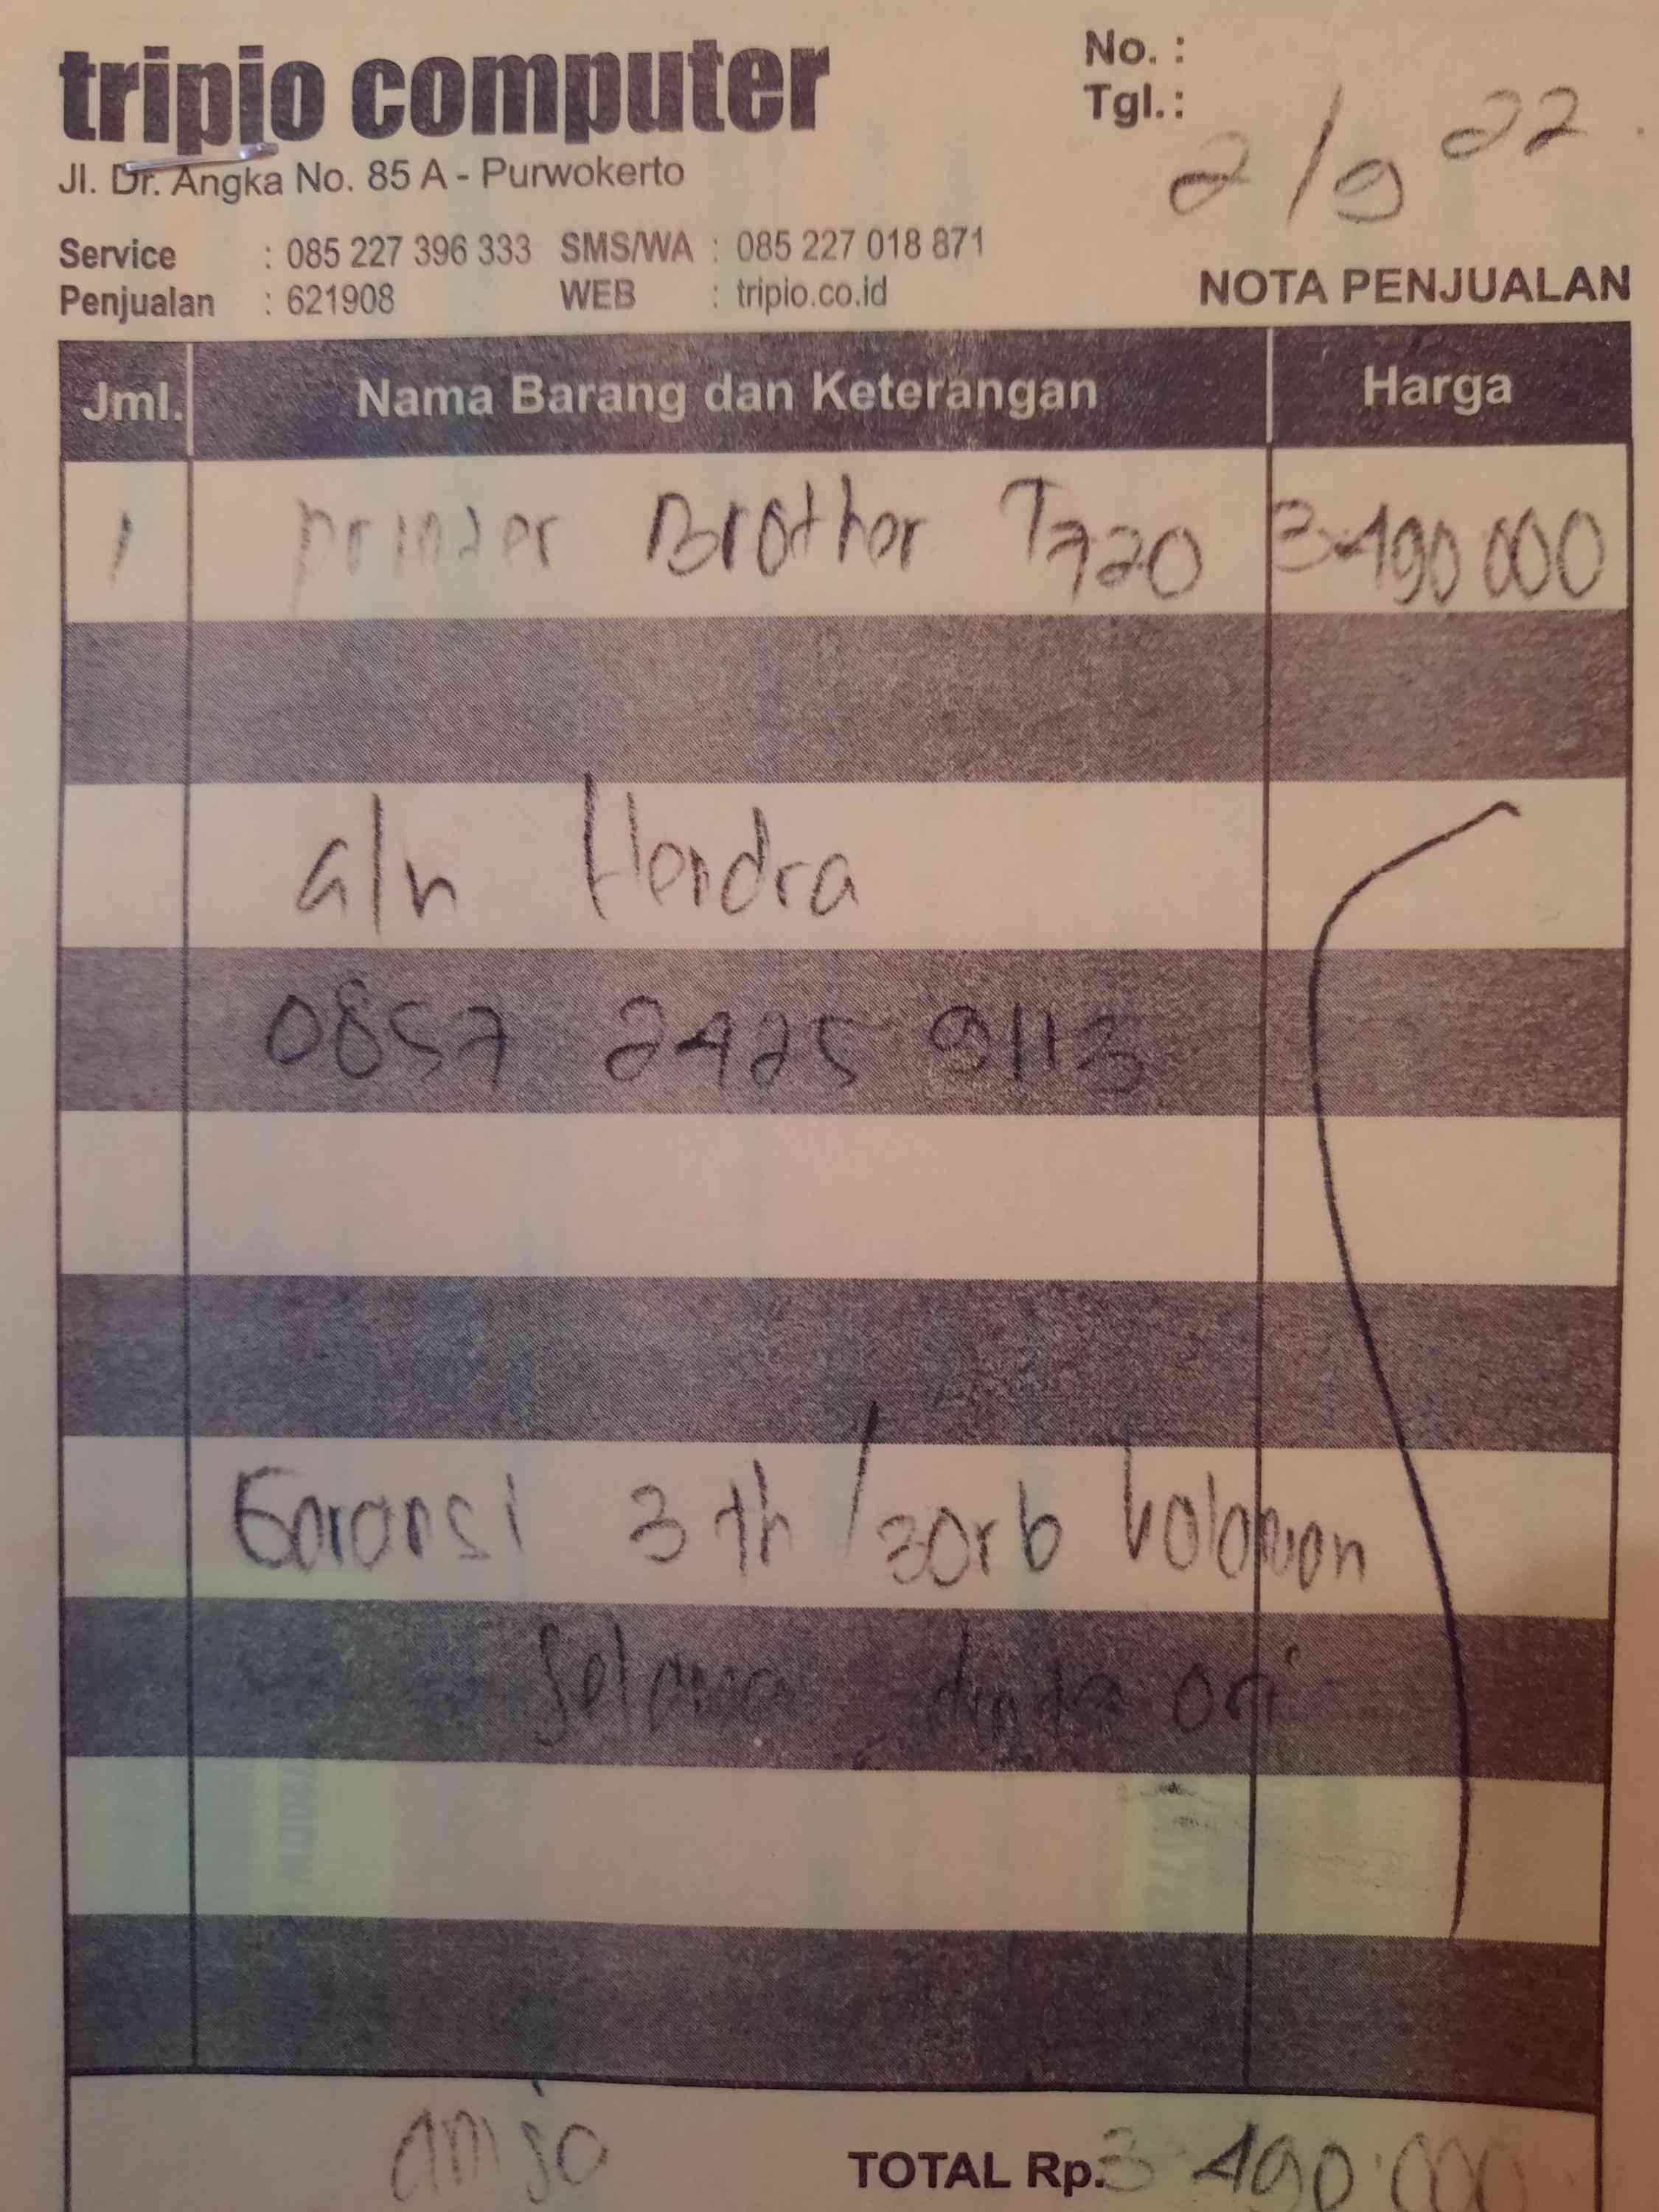 tripio computer
Jl. Dr. Angka No. 85 A - Purwokerto
No. :
Tgl. : 2/9 22
Service : 085 227 396 333 SMS/WA : 085 227 018 871
Penjualan : 621908 WEB : tripio.co.id
NOTA PENJUALAN
Jml. Nama Barang dan Keterangan Harga
1 printer Brother T720 3.490 000
a/n Hendra
0857 2425 9113
Garansi 3 th / 30rb halaman
Selama tinta ori
TOTAL Rp. 3.490.000